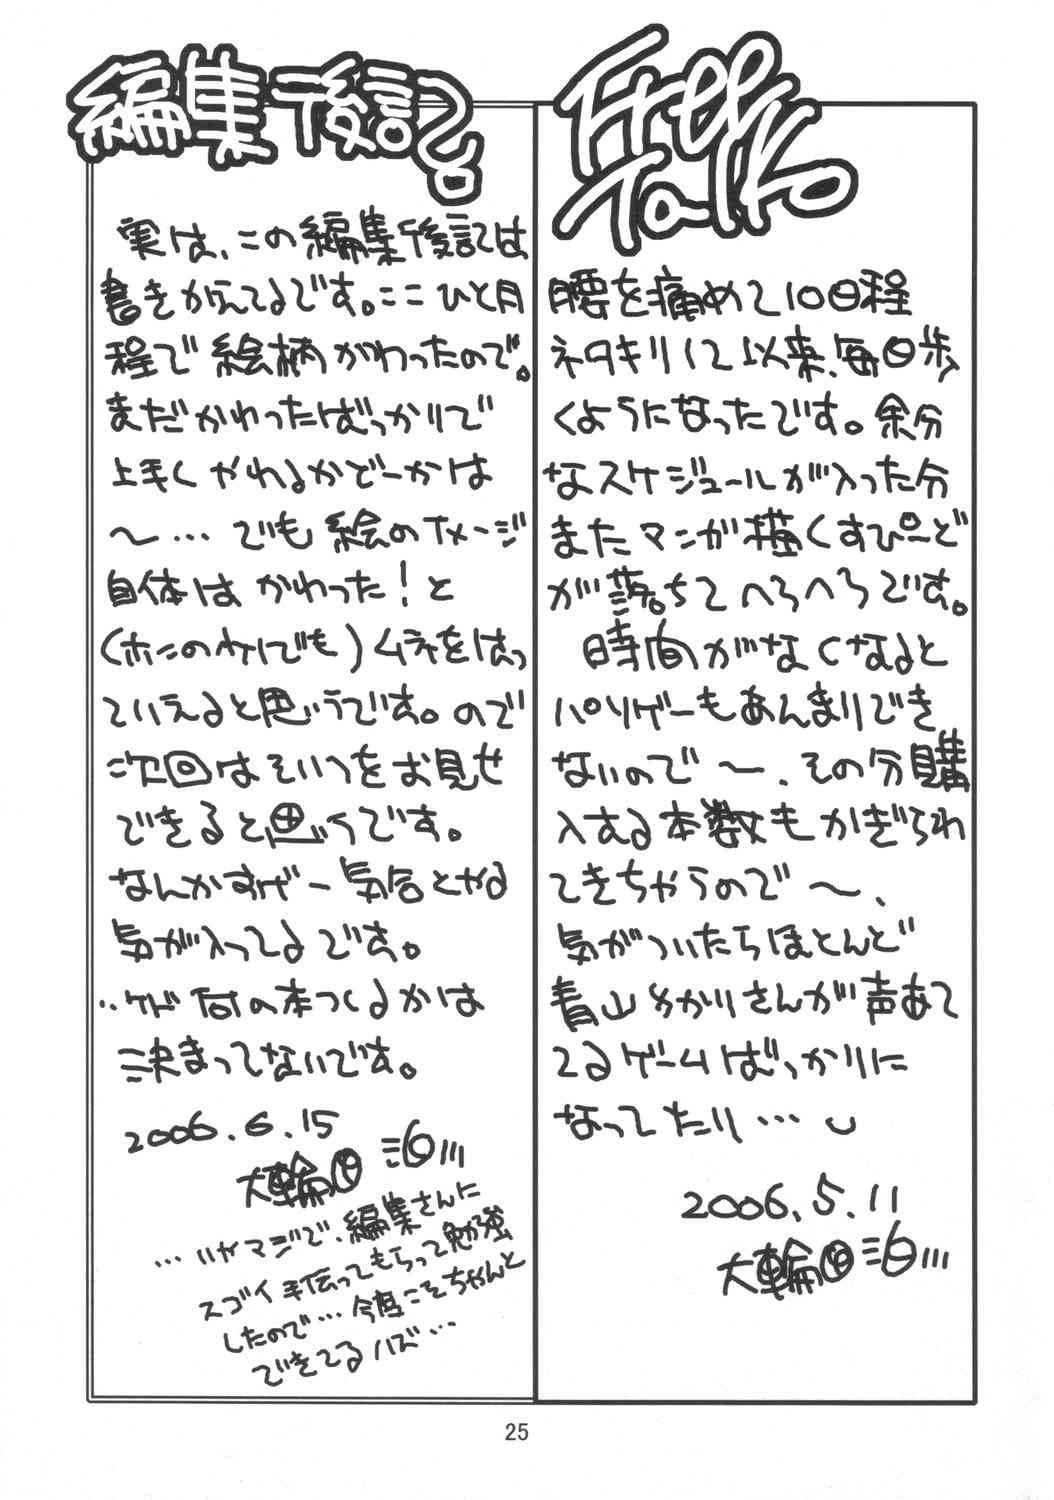 編集後記
実は、この編集後記は
書きかえてるです。ここひと月
程で絵柄がわったので。
まだかわったばっかりで
上手くやれるかどーかは
〜…でも絵のイメージ
自体はかわった！と
(ホンのケイでも)ムネをはっ
ていえると思うです。ので
次回はそいつをお見せ
できると思うです。
なんかすげー気合とやる
気が入ってるです。
‥ケド何の本つくるかは
決まってないです。
2006.6.15
…いやマジで、編集さんに
スゴイ手伝ってもらって勉強
したので…今度こそちゃんと
できてるハズ…
Free
Talk
腰を痛めて10日程
ネタキリして以来、毎日歩
くようになったです。余分
なスケジュールが入った分
またマンガ描くすぴーど
が落ちてへろへろです。
時間がなくなると
パソゲーもあんまりでき
ないので〜、その分購
入する本数もかぎられ
てきちゃうので〜、
気がついたらほとんど
青山ゆかりさんが声あて
てるゲームばっかりに
なってたり…
2006.5.11
25